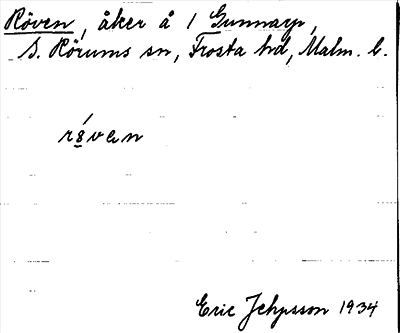 Röven, åker å 1 Gunnarp,
S. Rörums sn, Frosta hd, Malm. l.
Eric Jehpsson 1934